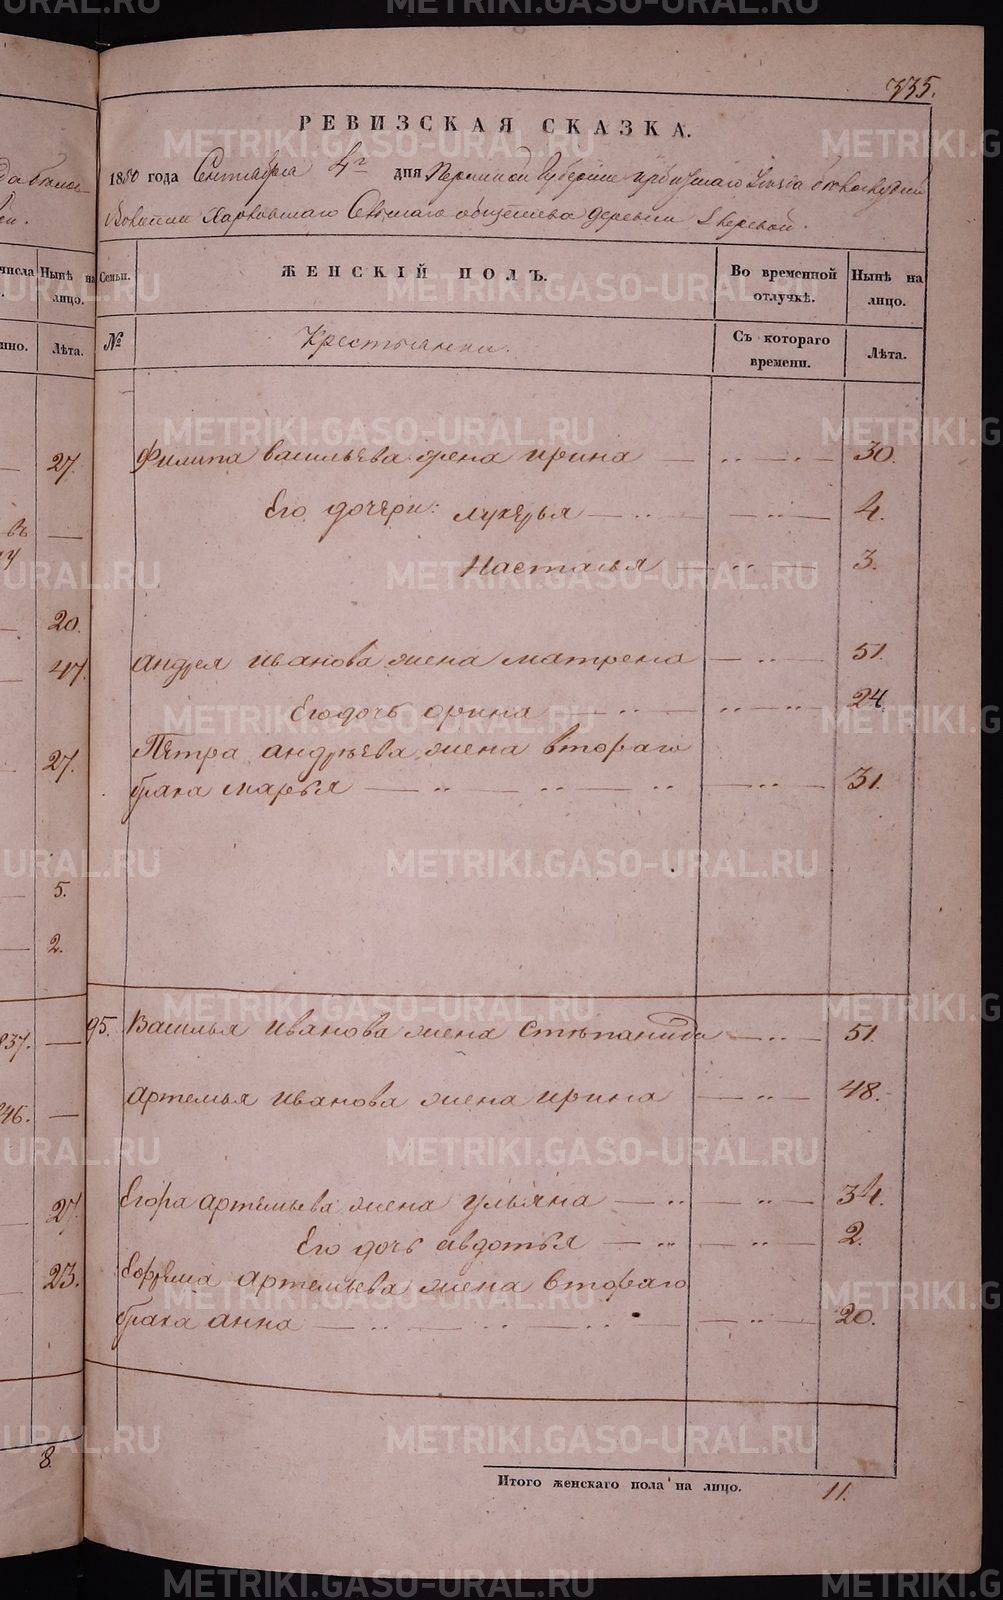 335.
РЕВИЗСКАЯ СКАЗКА.
1850 года Сентября 4г дня Пермской Губернии Ирбитскаго Уезда
Волости Харловскаго Сельскаго общества деревни Зверевой.
Семьи.
ЖЕНСКІЙ ПОЛЪ.
Во временной отлучкѣ.
Нынѣ на лицо.
№
Крестьянки.
Съ котораго времени.
Лѣта.
Филипа васильева жена ирина — 30.
Его дочери: лукерья — 4.
Насталья — 3.
андрея иванова жена матрена — 51
Его дочь орина — 24
Пѣтра андрѣева жена втораго
брака марья — 31.
95. Василья иванова жена Степанида — 51.
артемья иванова жена ирина — 48.
Егора артемьева жена ульяна — 34.
Его дочь авдотья — 2.
Ефрема артемьева жена втораго
брака анна — 20.
Итого женскаго пола на лицо. 11.
числа
Нынѣ на лицо.
Лѣта.
27.
20.
47.
27.
5.
2.
837.
846.
27.
23.
8.
METRIKI.GASO-URAL.RU